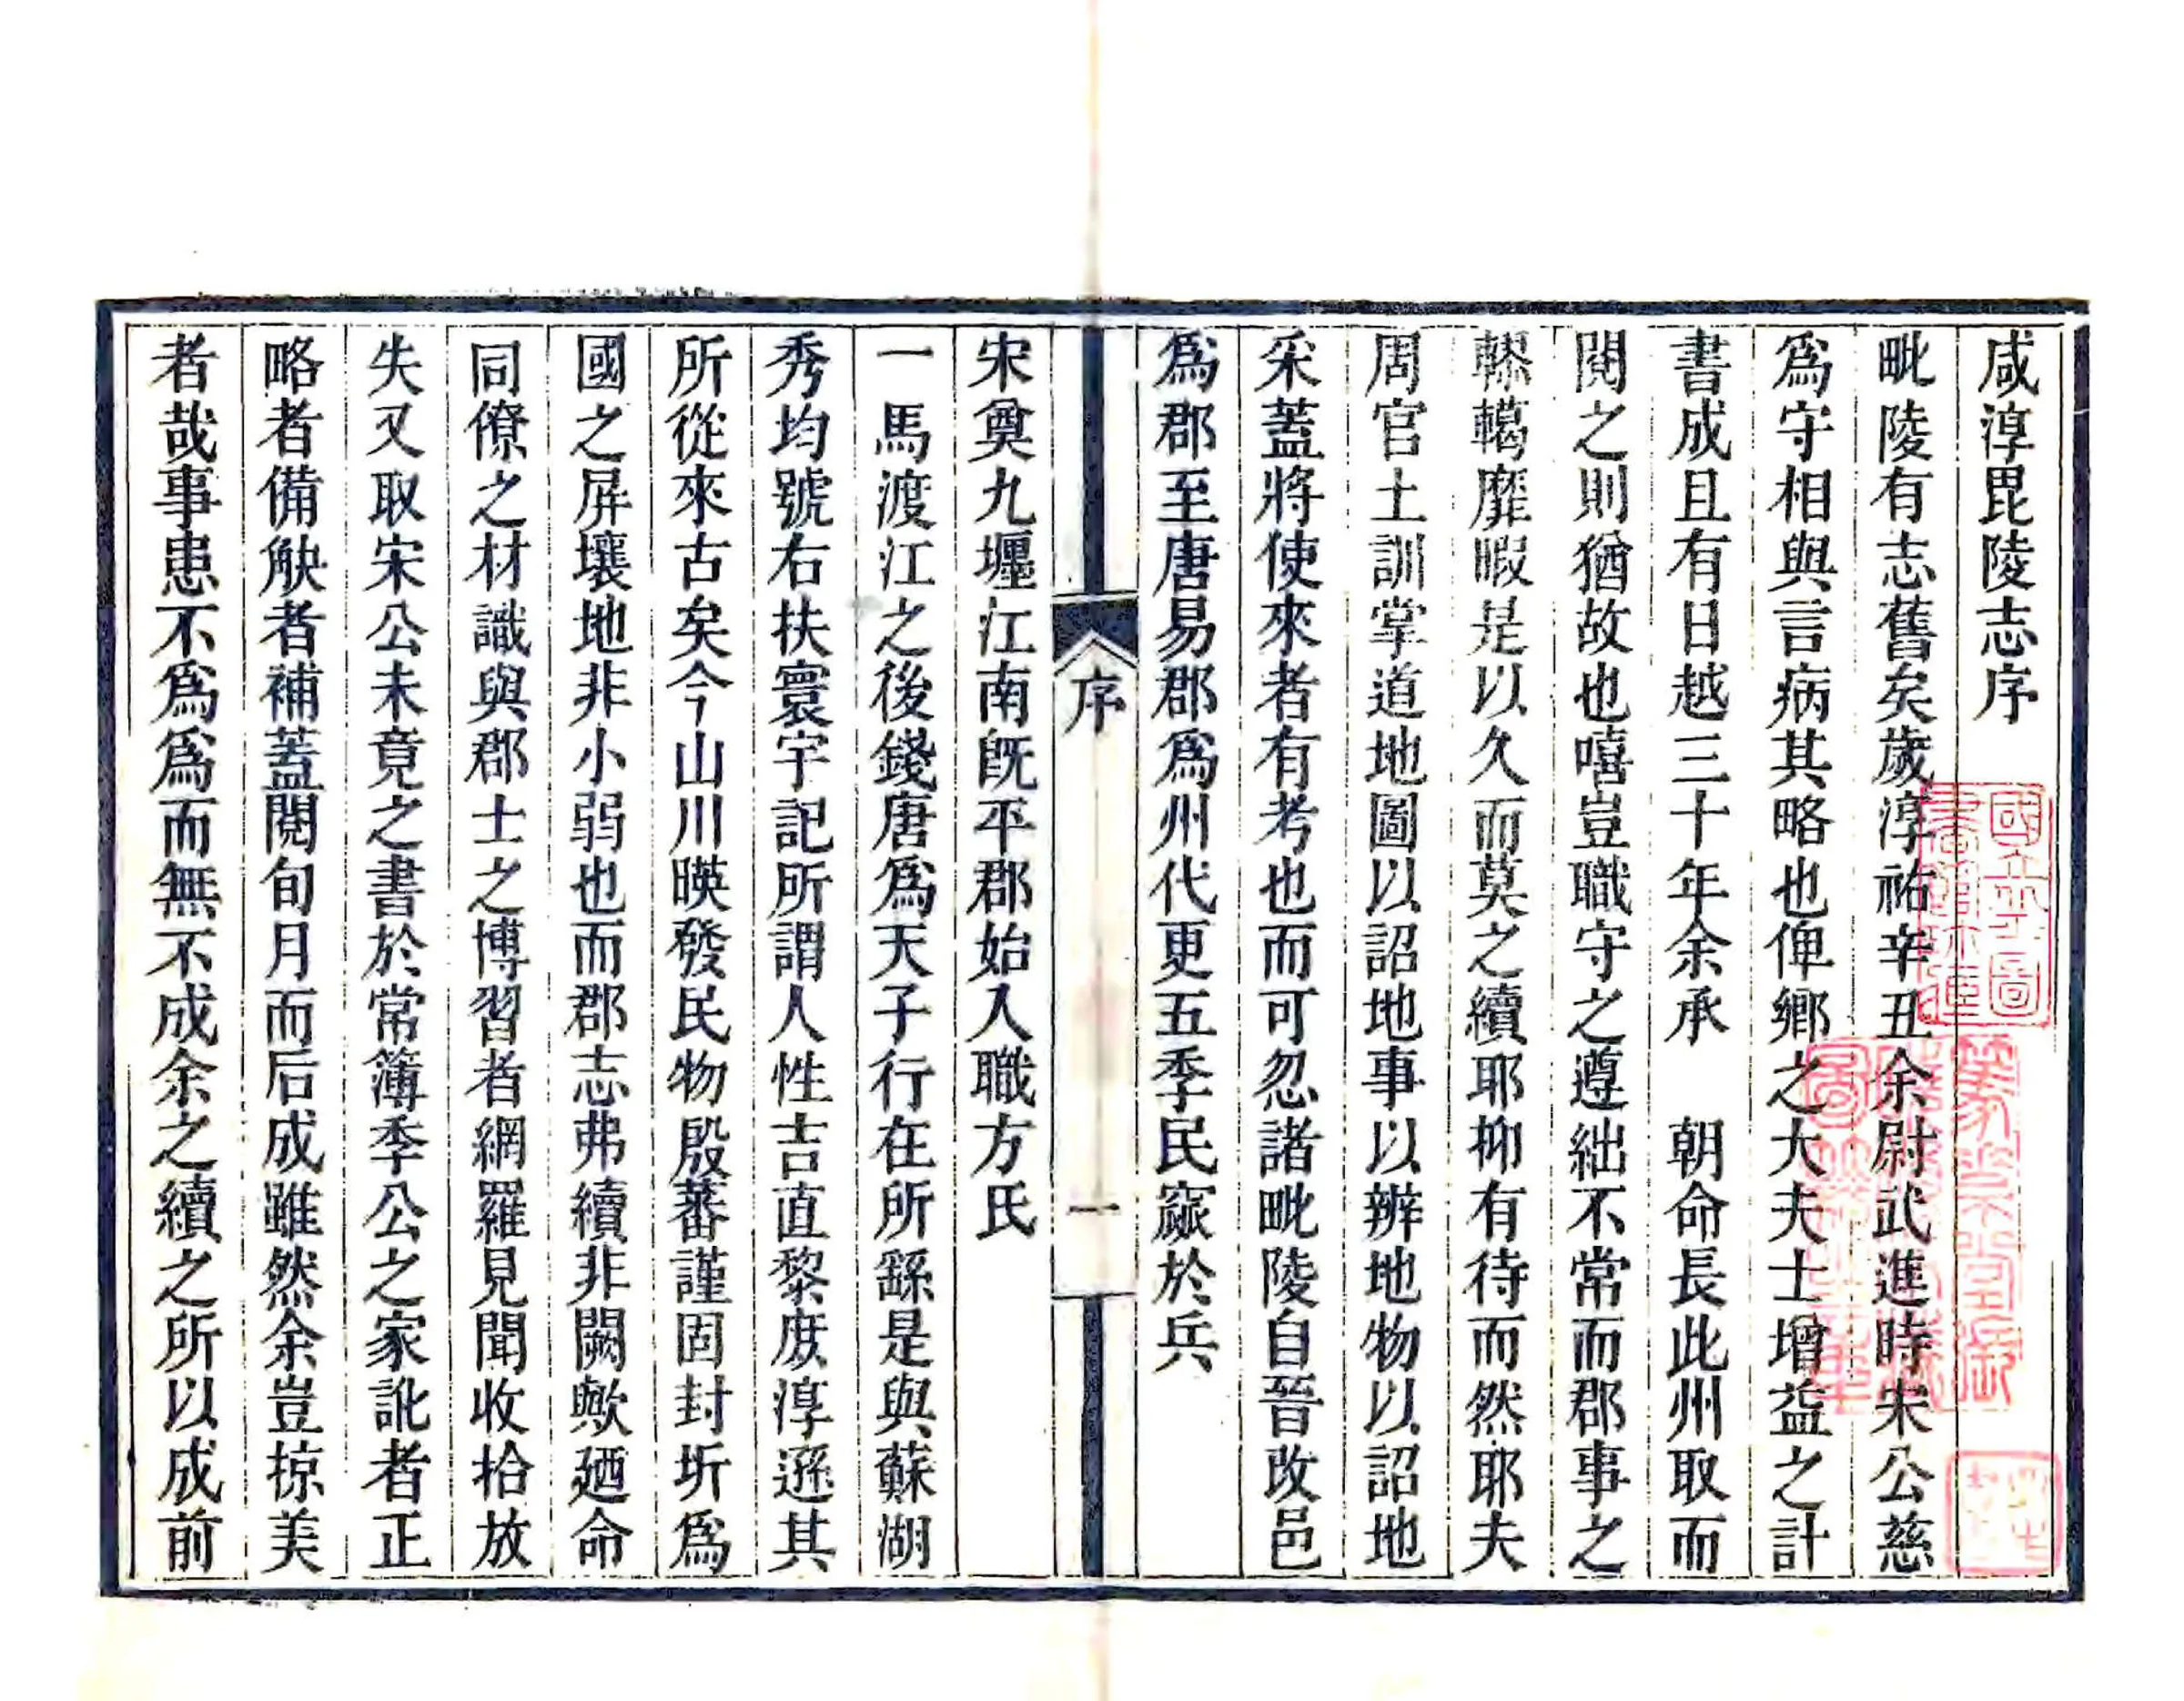 咸淳毘陵志序
毗陵有志舊矣歲淳祐辛丑余尉武進時宋公慈
爲守相與言病其略也俾鄉之大夫士增益之計
書成且有日越三十年余承　朝命長此州取而
閱之則猶故也嘻豈職守之遵絀不常而郡事之
轇轕靡暇是以久而莫之續耶抑有待而然耶夫
周官土訓掌道地圖以詔地事以辨地物以詔地
采蓋將使來者有考也而可忽諸毗陵自晉改邑
爲郡至唐易郡爲州代更五季民窳於兵
序
一
宋奠九壥江南旣平郡始入職方氏
一馬渡江之後錢唐爲天子行在所繇是與蘇湖
秀均號右扶寰宇記所謂人性吉直黎庻淳遜其
所從來古矣今山川暎發民物殷蕃謹固封圻爲
國之屛壤地非小弱也而郡志弗續非闕歟廼命
同僚之材識與郡士之博習者網羅見聞收拾放
失又取宋公未竟之書於常簿季公之家訛者正
略者備觖者補蓋閱旬月而后成雖然余豈掠美
者哉事患不爲爲而無不成余之續之所以成前
國立圖
書館珍藏